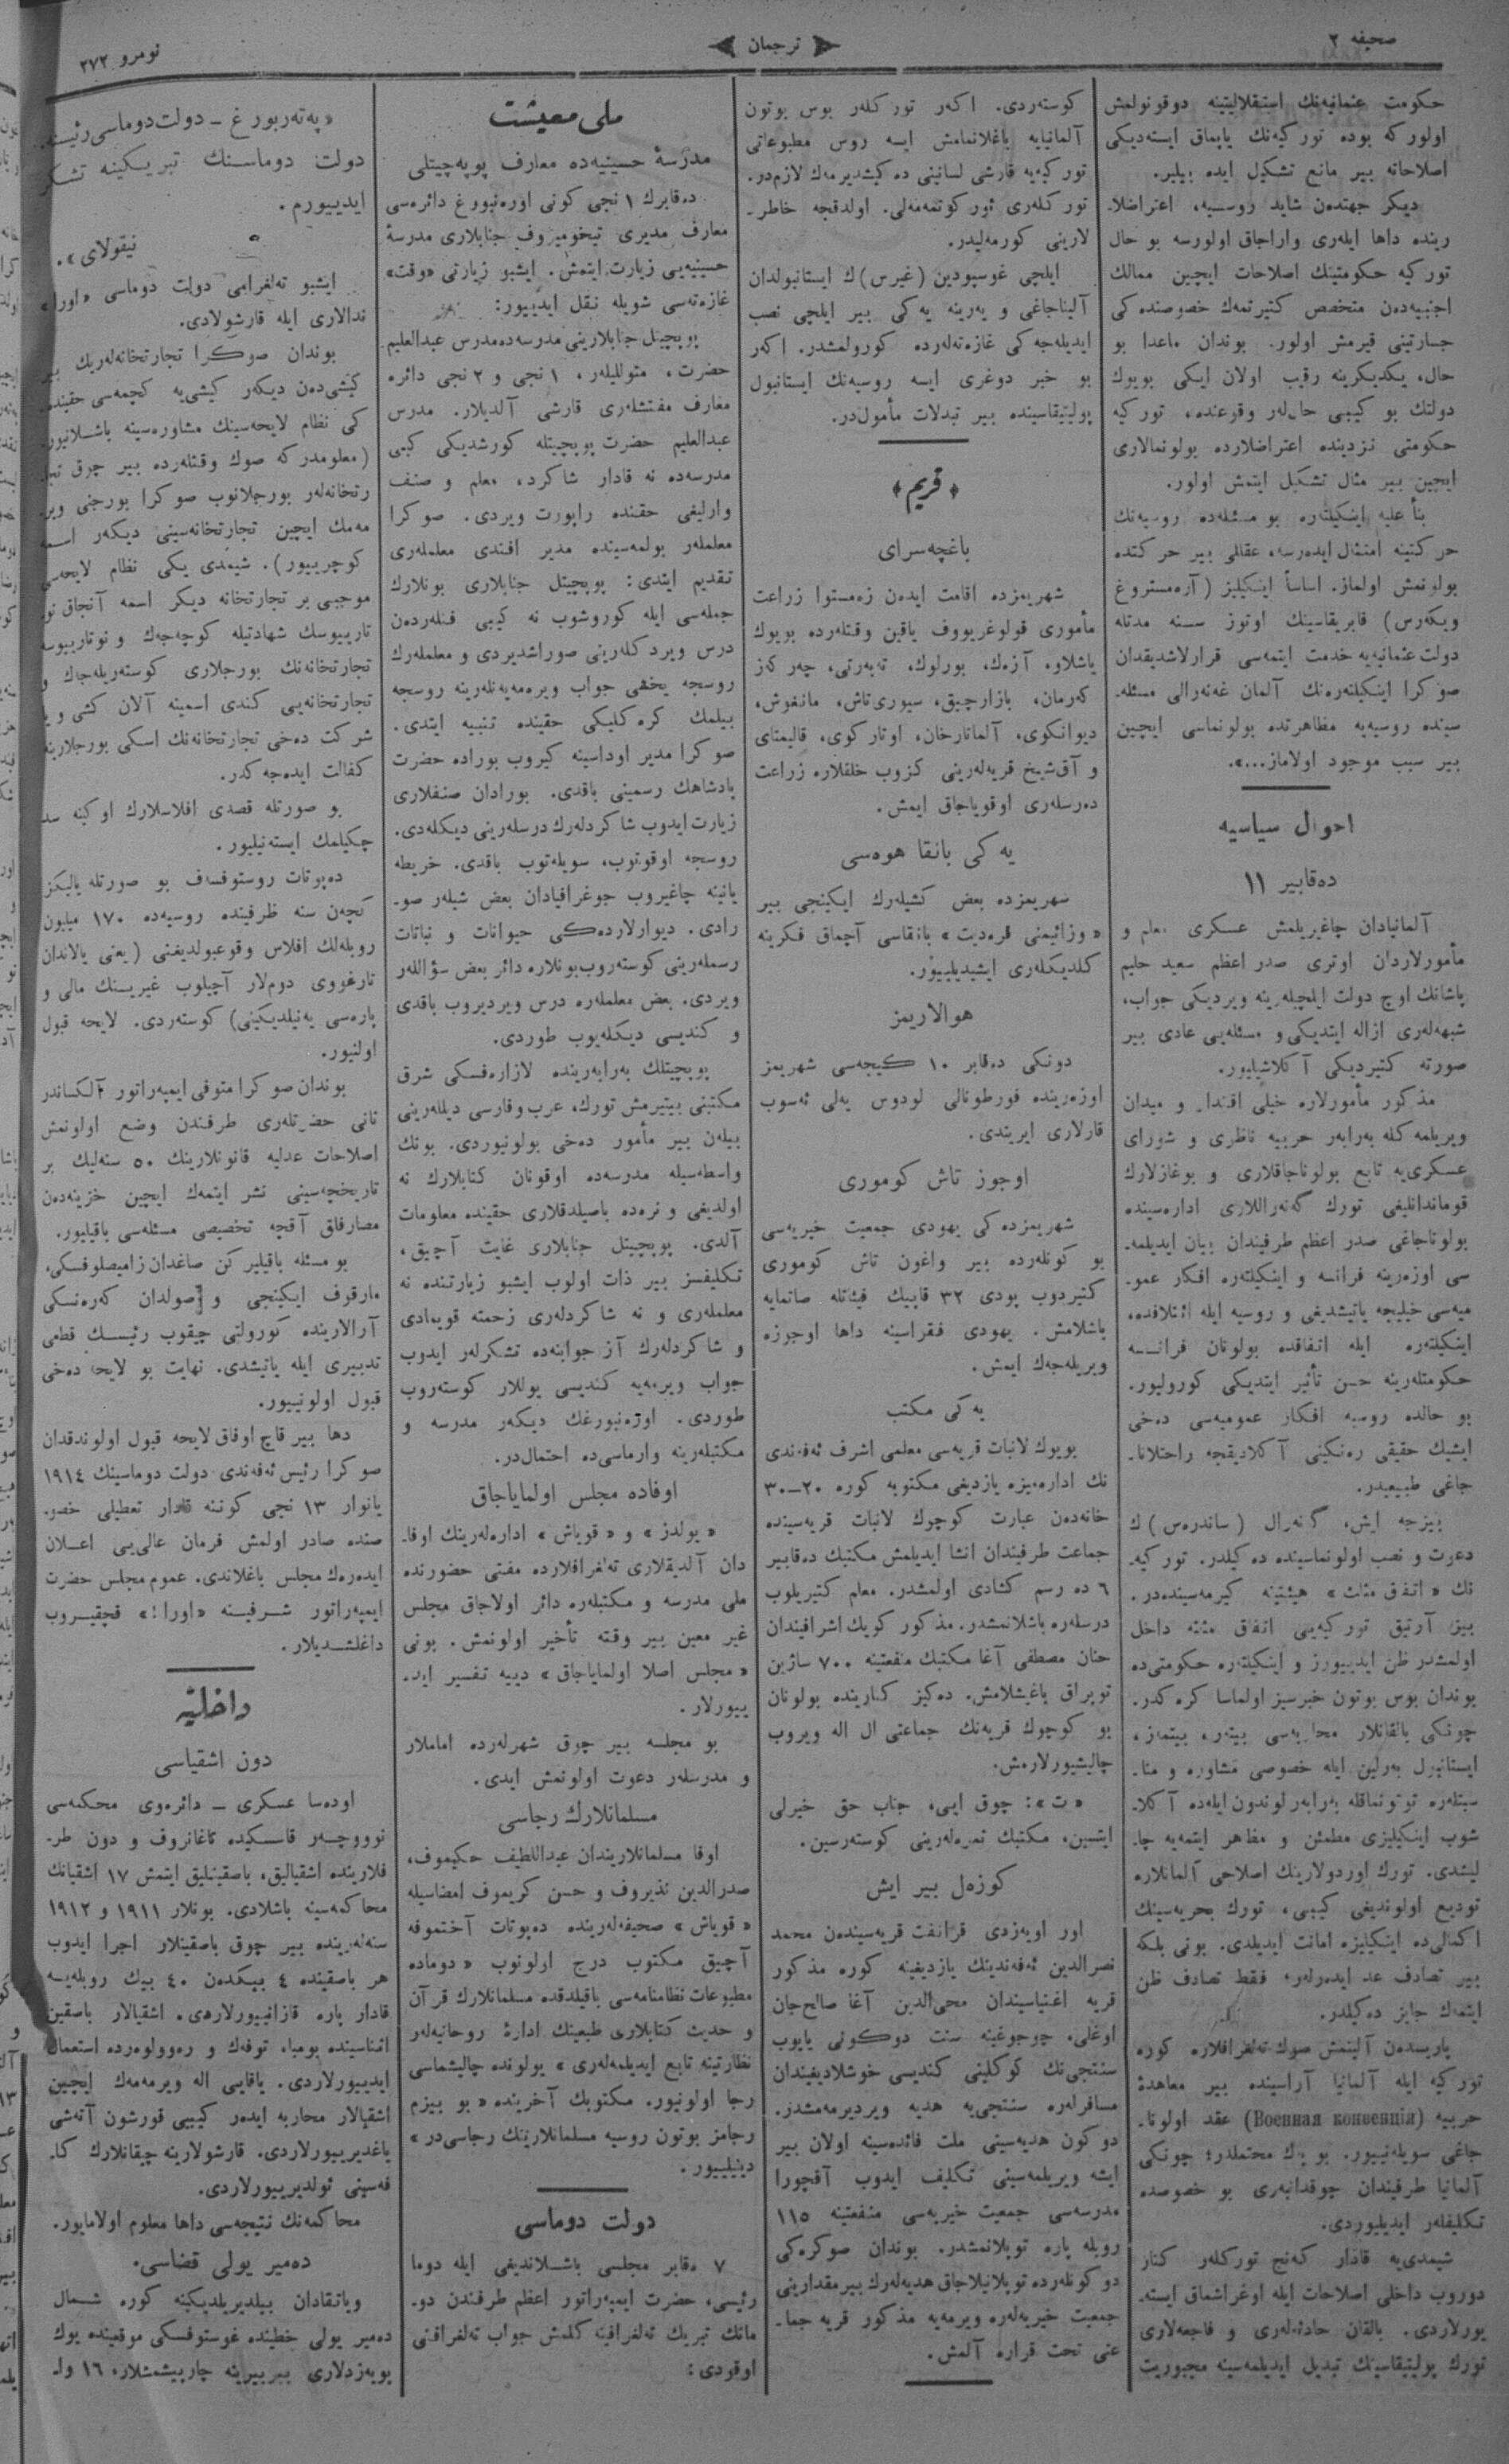 صحيفه ٢
ترجمان
نومرو ٢٧٢
حكومت عثمانيه‌نك استقلاليتينه دوقونولمش
اولور كه بوده توركيه‌نك ياپماق ايسته‌ديكى
اصلاحاته بير مانع تشكيل ايده بيلير.
ديكر جهتدن شايد روسيه، اعتراضلا-
رينده داها ايله‌رى واراجاق اولورسه بو حال
توركيه حكومتينك اصلاحات ايچين ممالك
اجنبيه‌دن متخصص كتيرتمه‌ك خصوصنده‌كى
جسارتينى قيرمش اولور. بوندان ماعدا بو
حال، يكديكرينه رقيب اولان ايكى بويوك
دولتك بو كيبى حال‌لر وقوعنده، توركيه
حكومتى نزدينده اعتراضلارده بولونمالارى
ايچين بير مثال تشكيل ايتمش اولور.
بناً عليه اينكيلتره بو مسئله‌ده روسيه‌نك
حركتينه امتثال ايده‌رسه، عقللى بير حركتده
بولونمش اولماز. اساساً اينكيليز (آرمسترونغ
ويكه‌رس) فابريقاسينك اوتوز سنه مدتله
دولت عثمانيه‌يه خدمت ايتمه‌سى قرارلاشديقدان
صوكرا اينكيلتره‌نك آلمان غه‌نه‌رالى مسئله-
سينده روسيه‌يه مظاهرتده بولونماسى ايچين
بير سبب موجود اولاماز...».
احوال سياسيه
ده‌قابير ١١
آلمانيادان چاغيريلمش عسكرى معلم و
مأمورلاردان اوترى صدر اعظم سعيد حليم
پاشانك اوچ دولت ايلچيله‌رينه ويرديكى جواب،
شبهه‌لرى ازاله ايتديكى و مسئله‌يى عادى بير
صورته كتيرديكى آكلاشيليور.
مذكور مأمورلاره خيلى اقتدار و ميدان
ويريلمه‌كله به‌رابه‌ر حربيه ناظرى و شوراى
عسكرى‌يه تابع بولوناجاقلارى و بوغازلارك
قوماندانليغى تورك گه‌نه‌راللارى اداره‌سينده
بولوناجاغى صدر اعظم طرفيندان بيان ايديلمه-
سى اوزه‌رينه فرانسه و اينكيلتره افكار عمو-
ميه‌سى خيليچه ياتيشديغى و روسيه ايله ائتلافده،
اينكيلتره ايله اتفاقده بولونان فرانسه
حكومتله‌رينه حسن تأثير ايتديكى كورولیور.
بو حالده روسيه افكار عموميه‌سى ده‌خى
ايشيك حقيقى ره‌نكينى آكلاديقجه راحتلانا-
جاغى طبيعيدر.
بيزجه ايش، گه‌نه‌رال (ساندرس) ك
دعوت و نصب اولونماسينده ده‌كيلدر. توركيه-
نك «اتفق مثلث» هيئتينه كيرمه‌سينده‌در.
بيز آرتيق توركيه‌يى اتفاق مثلثه داخل
اولمشدر ظن ايدييورز و اينكيلتره حكومتى‌ده
بوندان بوس بوتون خبرسيز اولماسا كره‌كدر.
چونكى بالقانلار محاربه‌سى بيته‌ر، بيتمه‌ز،
ايستانبول به‌رلين ايله خصوصى مشاوره و منا-
سبتله‌ره توتونماقله به‌رابه‌ر لوندون ايله‌ده آكلا-
شوب اينكيليزى مطمئن و مظاهر ايتمه‌يه چا-
ليشدى. تورك اوردولارينك اصلاحى آلمانلاره
توديع اولونديغى كيبى، تورك بحريه‌سينك
اكمالى‌ده اينكيليزه امانت ايديلدى. بونى بلكه
بير تصادف عد ايده‌رله‌ر، فقط تصادف ظن
ايتمه‌ك جايز ده‌كيلدر.
پاريسده‌ن آلينمش صوك ته‌لغرافلاره كوره
توركيه ايله آلمانيا آراسينده بير معاهدۀ
حربيه (Военная конвенція) عقد اولونا-
جاغى سويله‌نييور. بو پك محتملدر؛ چونكى
آلمانيا طرفيندان چوقدانبه‌رى بو خصوصده
تكليفلر ايديليوردى.
شيمدى‌يه قادار كه‌نج توركله‌ر كنار
دوروب داخلى اصلاحات ايله اوغراشماق ايسته-
يورلاردى. بالقان حادثه‌لرى و فاجعه‌لارى
تورك پوليتيقاسينك تبديل ايديلمه‌سينه مجبوريت
كوسته‌ردى. اكه‌ر توركله‌ر بوس بوتون
آلمانيايه باغلانمامش ايسه روس مطبوعاتى
توركيه‌يه قارشى لسانينى ده‌كيشديرمه‌ك لازم‌در.
توركله‌رى ئوركوتمه‌مه‌لى. اولدقجه خاطر-
لارينى كورمه‌ليدر.
ايلچى غوسپودين (غيرس) ك ايستانبولدان
آليناجاغى و يه‌رينه يه‌كى بير ايلچى نصب
ايديله‌جه‌كى غازه‌ته‌له‌رده كورولمشدر. اكه‌ر
بو خبر دوغرى ايسه روسيه‌نك ايستانبول
پوليتيقاسينده بير تبدلات مأمول‌در.
﴿قريم﴾
باغچه‌سراى
شهريمزده اقامت ايده‌ن زه‌مستوا زراعت
مأمورى قولوغريووف ياقين وقتله‌رده بويوك
ياشلاو، آزه‌ك، بورلوك، ته‌به‌رتى، چه‌ركه‌ز
كه‌رمان، بازارچيق، سيورى‌تاش، مانغوش،
ديوانكوى، آلماتارخان، اوتاركوى، قاليمتاى
و آق‌شيخ قريه‌له‌رينى كزوب خلقلاره زراعت
ده‌رسله‌رى اوقوياجاق ايمش.
يه‌كى بانقا هوه‌سى
شهريمزده بعض كشيله‌رك ايكينجى بير
«وزائيمنى قره‌ديت» بانقاسى آچماق فكرينه
كلديكله‌رى ايشيديلييور.
هوالاريمز
دونكى ده‌قابر ١٠ كيجه‌سى شهريمز
اوزه‌رينده فورطونالى لودوس يه‌لى ئه‌سوب
قارلارى ايريتدى.
اوجوز تاش كومورى
شهريمزده‌كى يهودى جمعيت خيريه‌سى
بو كونله‌رده بير واغون تاش كومورى
كتيردوب پودى ٣٢ قاپيك فيئتله صاتمايه
باشلامش. يهودى فقراسينه داها اوجوزه
ويريله‌جه‌ك ايمش.
يه‌كى مكتب
بويوك لانبات قريه‌سى معلمى اشرف ئه‌فه‌ندى
نك اداره‌ميزه يازديغى مكتوبه كوره ٢٠–٣٠
خانه‌ده‌ن عبارت كوچوك لانبات قريه‌سينده
جماعت طرفيندان انشا ايديلمش مكتبك ده‌قابير
٦ ده رسم كشادى اولمشدر. معلم كتيريلوب
درسله‌ره باشلانمشدر. مذكور كويك اشرافيندان
حنان مصطفى آغا مكتبك منفعتينه ٧٠٠ ساژين
توپراق باغيشلامش. ده‌كيز كنارينده بولونان
بو كوچوك قريه‌نك جماعتى ال اله ويروب
چاليشيورلارمش.
«ت»: چوق ايى، جناب حق خيرلى
ايتسين، مكتبك ثمره‌له‌رينى كوسته‌رسين.
كوزه‌ل بير ايش
اور اويه‌زدى قرانفت قريه‌سينده‌ن محمد
نصرالدين ئه‌فه‌ندينك يازديغينه كوره مذكور
قريه اغنياسيندان محى‌الدين آغا صالح‌جان
اوغلى، چوجوغينه سنت دوكونى ياپوب
سنتجى‌نك كوكلينى كنديسى خوشلاديغيندان
مسافرله‌ره سنتجى‌يه هديه ويرديرمه‌مشدر.
دوكون هديه‌سينى ملت فائده‌سينه اولان بير
ايشه ويريلمه‌سينى تكليف ايدوب آقچورا
مدرسه‌سى جمعيت خيريه‌سى منفعتينه ١١٥
روبله پاره توپلانمشدر. بوندان صوكره‌كى
دوكونله‌رده توپلانيلاجاق هديه‌له‌رك بير مقدارينى
جمعيت خيريه‌له‌ره ويرمه‌يه مذكور قريه جما-
عتى تحت قراره آلمش.
ملى معيشت
مدرسۀ حسينيه‌ده معارف پوپه‌چيتلى
ده‌قابرك ١ نجى كونى اوره‌نبورغ دائره‌سى
معارف مديرى تيخوميروف جنابلارى مدرسۀ
حسينيه‌يى زيارت ايتمش. ايشبو زيارتى «وقت»
غازه‌ته‌سى شويله نقل ايدييور:
پوپچيتل جنابلارينى مدرسه‌ده مدرس عبدالعليم
حضرت، متوليلر، ١ نجى و ٢ نجى دائره
معارف مفتشله‌رى قارشى آلديلار. مدرس
عبدالعليم حضرت پوپچيتله كورشديكى كيبى
مدرسه‌ده نه قادار شاكرد، معلم و صنف
وارليغى حقنده راپورت ويردى. صوكرا
معلمله‌ر بولمه‌سينده مدير افندى معلمله‌رى
تقديم ايتدى: پوپچيتل جنابلارى بونلارك
جمله‌سى ايله كوروشوب نه كيبى فنله‌رده‌ن
درس ويردكله‌رينى صوراشديردى و معلمله‌رك
روسجه يخشى جواب ويره‌مه‌يه‌نله‌رينه روسجه
بيلمك كره‌كليكى حقينده تنبيه ايتدى.
صوكرا مدير اوداسينه كيروب بوراده حضرت
پادشاهك رسمينى باقدى. بورادان صنفلارى
زيارت ايدوب شاكردله‌رك درسله‌رينى ديكله‌دى.
روسجه اوقوتوب، سويله‌توب باقدى. خريطه
يانينه چاغيروب جوغرافيادان بعض شيله‌ر صو-
رادى. ديوارلارده‌كى حيوانات و نباتات
رسمله‌رينى كوسته‌روب بونلاره دائر بعض سؤاللر
ويردى. بعض معلمله‌ره درس ويرديروب باقدى
و كنديسى ديكله‌يوب طوردى.
پوپچيتلك به‌رابه‌رينده لازاره‌فسكى شرق
مكتبنى بيتيرمش تورك، عرب و فارسى ديلله‌رينى
بيله‌ن بير مأمور ده‌خى بولونيوردى. بونك
واسطه‌سيله مدرسه‌ده اوقونان كتابلارك نه
اولديغى و نره‌ده باصيلدقلارى حقينده معلومات
آلدى. پوپچيتل جنابلارى غايت آچيق،
تكليفسز بير ذات اولوب ايشبو زيارتنده نه
معلمله‌رى و نه شاكردله‌رى زحمته قويمادى
و شاكردله‌رك آز جوابنه‌ده تشكرله‌ر ايدوب
جواب ويرمه‌يه كنديسى يوللار كوسته‌روب
طوردى. اوره‌نبورغك ديكه‌ر مدرسه و
مكتبله‌رينه وارماسى‌ده احتمال‌در.
اوفاده مجلس اولماياجاق
«يولدز» و «قوياش» اداره‌له‌رينك اوفا-
دان آلديقلارى ته‌لغرافلارده مفتى حضورنده
ملى مدرسه و مكتبله‌ره دائر اولاجاق مجلس
غير معين بير وقته تأخير اولونمش. بونى
«مجلس اصلا اولماياجاق» دييه تفسير ايد-
ييورلار.
بو مجلسه بير چوق شهرله‌رده اماملار
و مدرسله‌ر دعوت اولونمش ايدى.
مسلمانلارك رجاسى
اوفا مسلمانلاريندان عبداللطيف حكيموف،
صدرالدين نذيروف و حسن كريموف امضاسيله
«قوياش» صحيفه‌له‌رينده ده‌پوتات آختموفه
آچيق مكتوب درج اولونوب «دوماده
مطبوعات نظامنامه‌سى باقيلدقده مسلمانلارك قرآن
و حديث كتابلارى طبعينك ادارۀ روحانيه‌له‌ر
نظارتينه تابع ايديلمه‌له‌رى» يولونده چاليشماسى
رجا اولونيور. مكتوبك آخرينده «بو بيزم
رجامز بوتون روسيه مسلمانلارينك رجاسى‌در»
دينيلييور.
دولت دوماسى
٧ ده‌قابر مجلسى باشلانديغى ايله دوما
رئيسى، حضرت ايمپه‌راتور اعظم طرفندن دو-
مانك تبريك ته‌لغرافينه كلمش جواب ته‌لغرافنى
اوقودى:
«په‌ته‌ربورغ – دولت دوماسى رئيسنه.
دولت دوماسنك تبريكينه تشكر
ايدييورم.
نيقولاى».
ايشبو ته‌لغرامى دولت دوماسى «اورا»
ندالارى ايله قارشولادى.
بوندان صوكرا تجارتخانه‌له‌رك بير
كيشى‌ده‌ن ديكه‌ر كيشى‌يه كچمه‌سى حقينده
كى نظام لايحه‌سينك مشاوره‌سينه باشلانيور.
(معلومدر كه صوك وقتله‌رده بير چوق تجا-
رتخانه‌له‌ر بورجلانوب صوكرا بورجنى وير-
مه‌مك ايچين تجارتخانه‌سينى ديكه‌ر اسمه
كوچرييور). شيمدى يكى نظام لايحه‌سى
موجبى بر تجارتخانه ديكر اسمه آنجاق نو-
تارييوسك شهادتيله كوچه‌جه‌ك و نوتارييوسه
تجارتخانه‌نك بورجلارى كوسته‌ريله‌جه‌ك و
تجارتخانه‌يى كندى اسمينه آلان كشى و يا
شركت ده‌خى تجارتخانه‌نك اسكى بورجلارينه
كفالت ايده‌جه‌كدر.
بو صورتله قصدى افلاسلارك اوكينه سد
چكيلمك ايسته‌نيليور.
ده‌پوتات روستوفسه‌ف بو صورتله ياليكز
كچه‌ن سنه ظرفينده روسيه‌ده ١٧٠ ميليون
روبله‌لك افلاس وقوعبولديغنى (يعنى يالاندان
تارغووى دوم‌لار آچيلوب غيريسنك مالى و
پاره‌سى يه‌نيلديكينى) كوسته‌ردى. لايحه قبول
اولنيور.
بوندان صوكرا متوفى ايمپه‌راتور آلكساندر
ثانى حضرتله‌رى طرفندن وضع اولونمش
اصلاحات عدليه قانونلارينك ٥٠ سنه‌ليك بر
تاريخچه‌سينى نشر ايتمه‌ك ايچين خزينه‌ده‌ن
مصارفاق آقچه تخصيصى مسئله‌سى باقيليور.
بو مسئله باقيلير كن صاغدان زاميصلوفسكى،
مارقوف ايكينجى و صولدان كه‌ره‌نسكى
آرالارينده كورولتى چيقوب رئيسك قطعى
تدبيرى ايله ياتيشدى. نهايت بو لايحه ده‌خى
قبول اولونييور.
دها بير قاچ اوفاق لايحه قبول اولوندقدان
صوكرا رئيس ئه‌فه‌ندى دولت دوماسينك ١٩١٤
يانوار ١٣ نجى كونينه قادار تعطيلى خصو-
صنده صادر اولمش فرمان عالى‌يى اعلان
ايده‌ره‌ك مجلس باغلاندى. عموم مجلس حضرت
ايمپه‌راتور شرفينه «اورا!» قچقيروب
داغلشديلار.
داخليه
دون اشقياسى
اوده‌سا عسكرى – دائره‌وى محكمه‌سى
نوووچه‌ر قاسكيده تاغانروف و دون طر-
فلارينده اشقياليق، باصقينليق ايتمش ١٧ اشقيانك
محاكمه‌سينه باشلادى. بونلار ١٩١١ و ١٩١٢
سنه‌له‌رينده بير چوق باصقينلار اجرا ايدوب
هر باصقينده ٤ بيكده‌ن ٤٠ بيك روبله‌يه
قادار پاره قازانييورلاردى. اشقيالار باصقين
اثناسينده بومبا، توفه‌ك و ره‌وولوه‌رده استعمال
ايدييورلاردى. ياقايى اله ويرمه‌مه‌ك ايچين
اشقيالار محاربه ايده‌ر كيبى قورشون آته‌شى
ياغديرييورلاردى. قارشولارينه چيقانلارك كا-
فه‌سينى ئولديرييورلاردى.
محاكمه‌نك نتيجه‌سى داها معلوم اولامايور.
ده‌مير يولى قضاسى.
وياتقادان بيلديريلديكينه كوره شمال
ده‌مير يولى خطينده غوستوفسكى موقعينده يوك
پويه‌زدلارى بيربيرينه چارپيشمشلار، ١٦ وا-